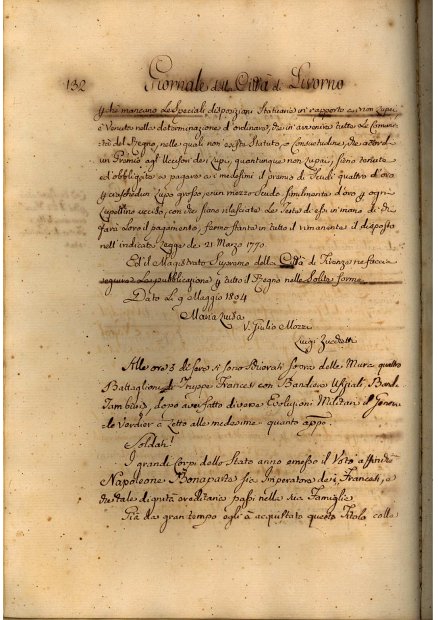 132 Giornale della Città di Livorno
che mancano le speciali disposizioni Statuarie in rapporto ai non Lupai,
è Venuto nella determinazione d'ordinare, che in avvenire tutte le Comuni-
tà del Regno, nelle quali non esiste Statuto, o Consuetudine, che accordi
un Premio agl'Uccisori dei Lupi, quantunque non Lupai, siano tenute
ed obbligate a pagare ai medesimi il premio di Scudi quattro d'oro
p ciaschedun Lupo grosso, e un mezzo Scudo similmente d'oro p ogni
Lupottino ucciso, con che siano rilasciate le Teste di essi in mano di chi
farà loro il pagamento, ferma stante in tutto il rimanente il disposto
nell'indicata Legge de 21 Marzo 1770.
Ed il Magistrato Supremo della Città di Firenze ne faccia
seguire la pubblicazione p tutto il Regno nelle Solite forme.
Dato Li 9 Maggio 1804
Maria Luisa
V. Giulio Mozzi
Luigi
Alle ore 5 di sera si sono Schierati fuora delle Mura quattro
Battaglioni di Truppe Francesi con Bandiere Uffiziali Banda
Tamburi, e dopo aver fatto diverse Evoluzioni Militari il Genera-
le Verdier à Letto alle medesime quanto appo.
Soldati!
I grandi Corpi dello Stato anno emesso il Voto affinchè
Napoleone Bonaparte sia Imperatore dei Francesi, e
che tale dignità ereditaria passi nella sua Famiglia
Già da gran tempo egli à acquistato questo Titolo colla